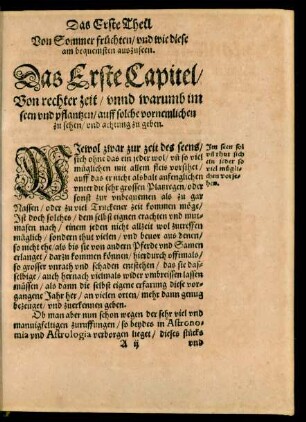 Das Erste Theil
Von Sommer früchten/ vnd wie diese
am bequemisten auszuseen.
Das Erste Capitel/
Von rechter zeit/ vnnd warumb im
seen vnd pflantzen/ auff solche vornemlichen
zu sehen/ vnd achtung zu geben.
WJewol zwar zur zeit des seens/
sich ohne das ein jeder wol/ vñ so viel
müglichen mit allem fleis vorsihet/
auff das er nicht alsbalt anfenglichen
vnter die sehr grossen Platzregen/ oder
sonst zur vnbequemen als zu gar
Nassen/ oder zu viel Truckener zeit kommen möge/
Ist doch solches/ dem selbst eignen erachten vnd mut-
masen nach/ einem jeden nicht allezeit wol zutreffen
müglich/ sondern thut vielen/ vnd benor aus denen/
so nicht ehe/ als bis sie von andern Pferd vnd Samen
erlanget/ darzu kommen können/ hierdurch offtmals/
so grosser vnrath vnd schaden entstehen/ das sie das-
selbige/ auch hernach vielmals wider vmbreissen lassen
müssen/ als dann die selbst eigene erfarung diese vor-
gangene Jahr her/ an vielen orten/ mehr dann genug
bezeuget/ vnd zuerkennen geben.
Ob man aber nun schon wegen der sehr viel vnd
manuigfeltigen zuruffungen/ so beydes in Astrono-
mia vnd Astrologia verborgen lieget/ dieses stücks
A ij vnd
Im seen sol
vñ thut sich
ein jeder so
viel müglich-
en vorse-
hen.